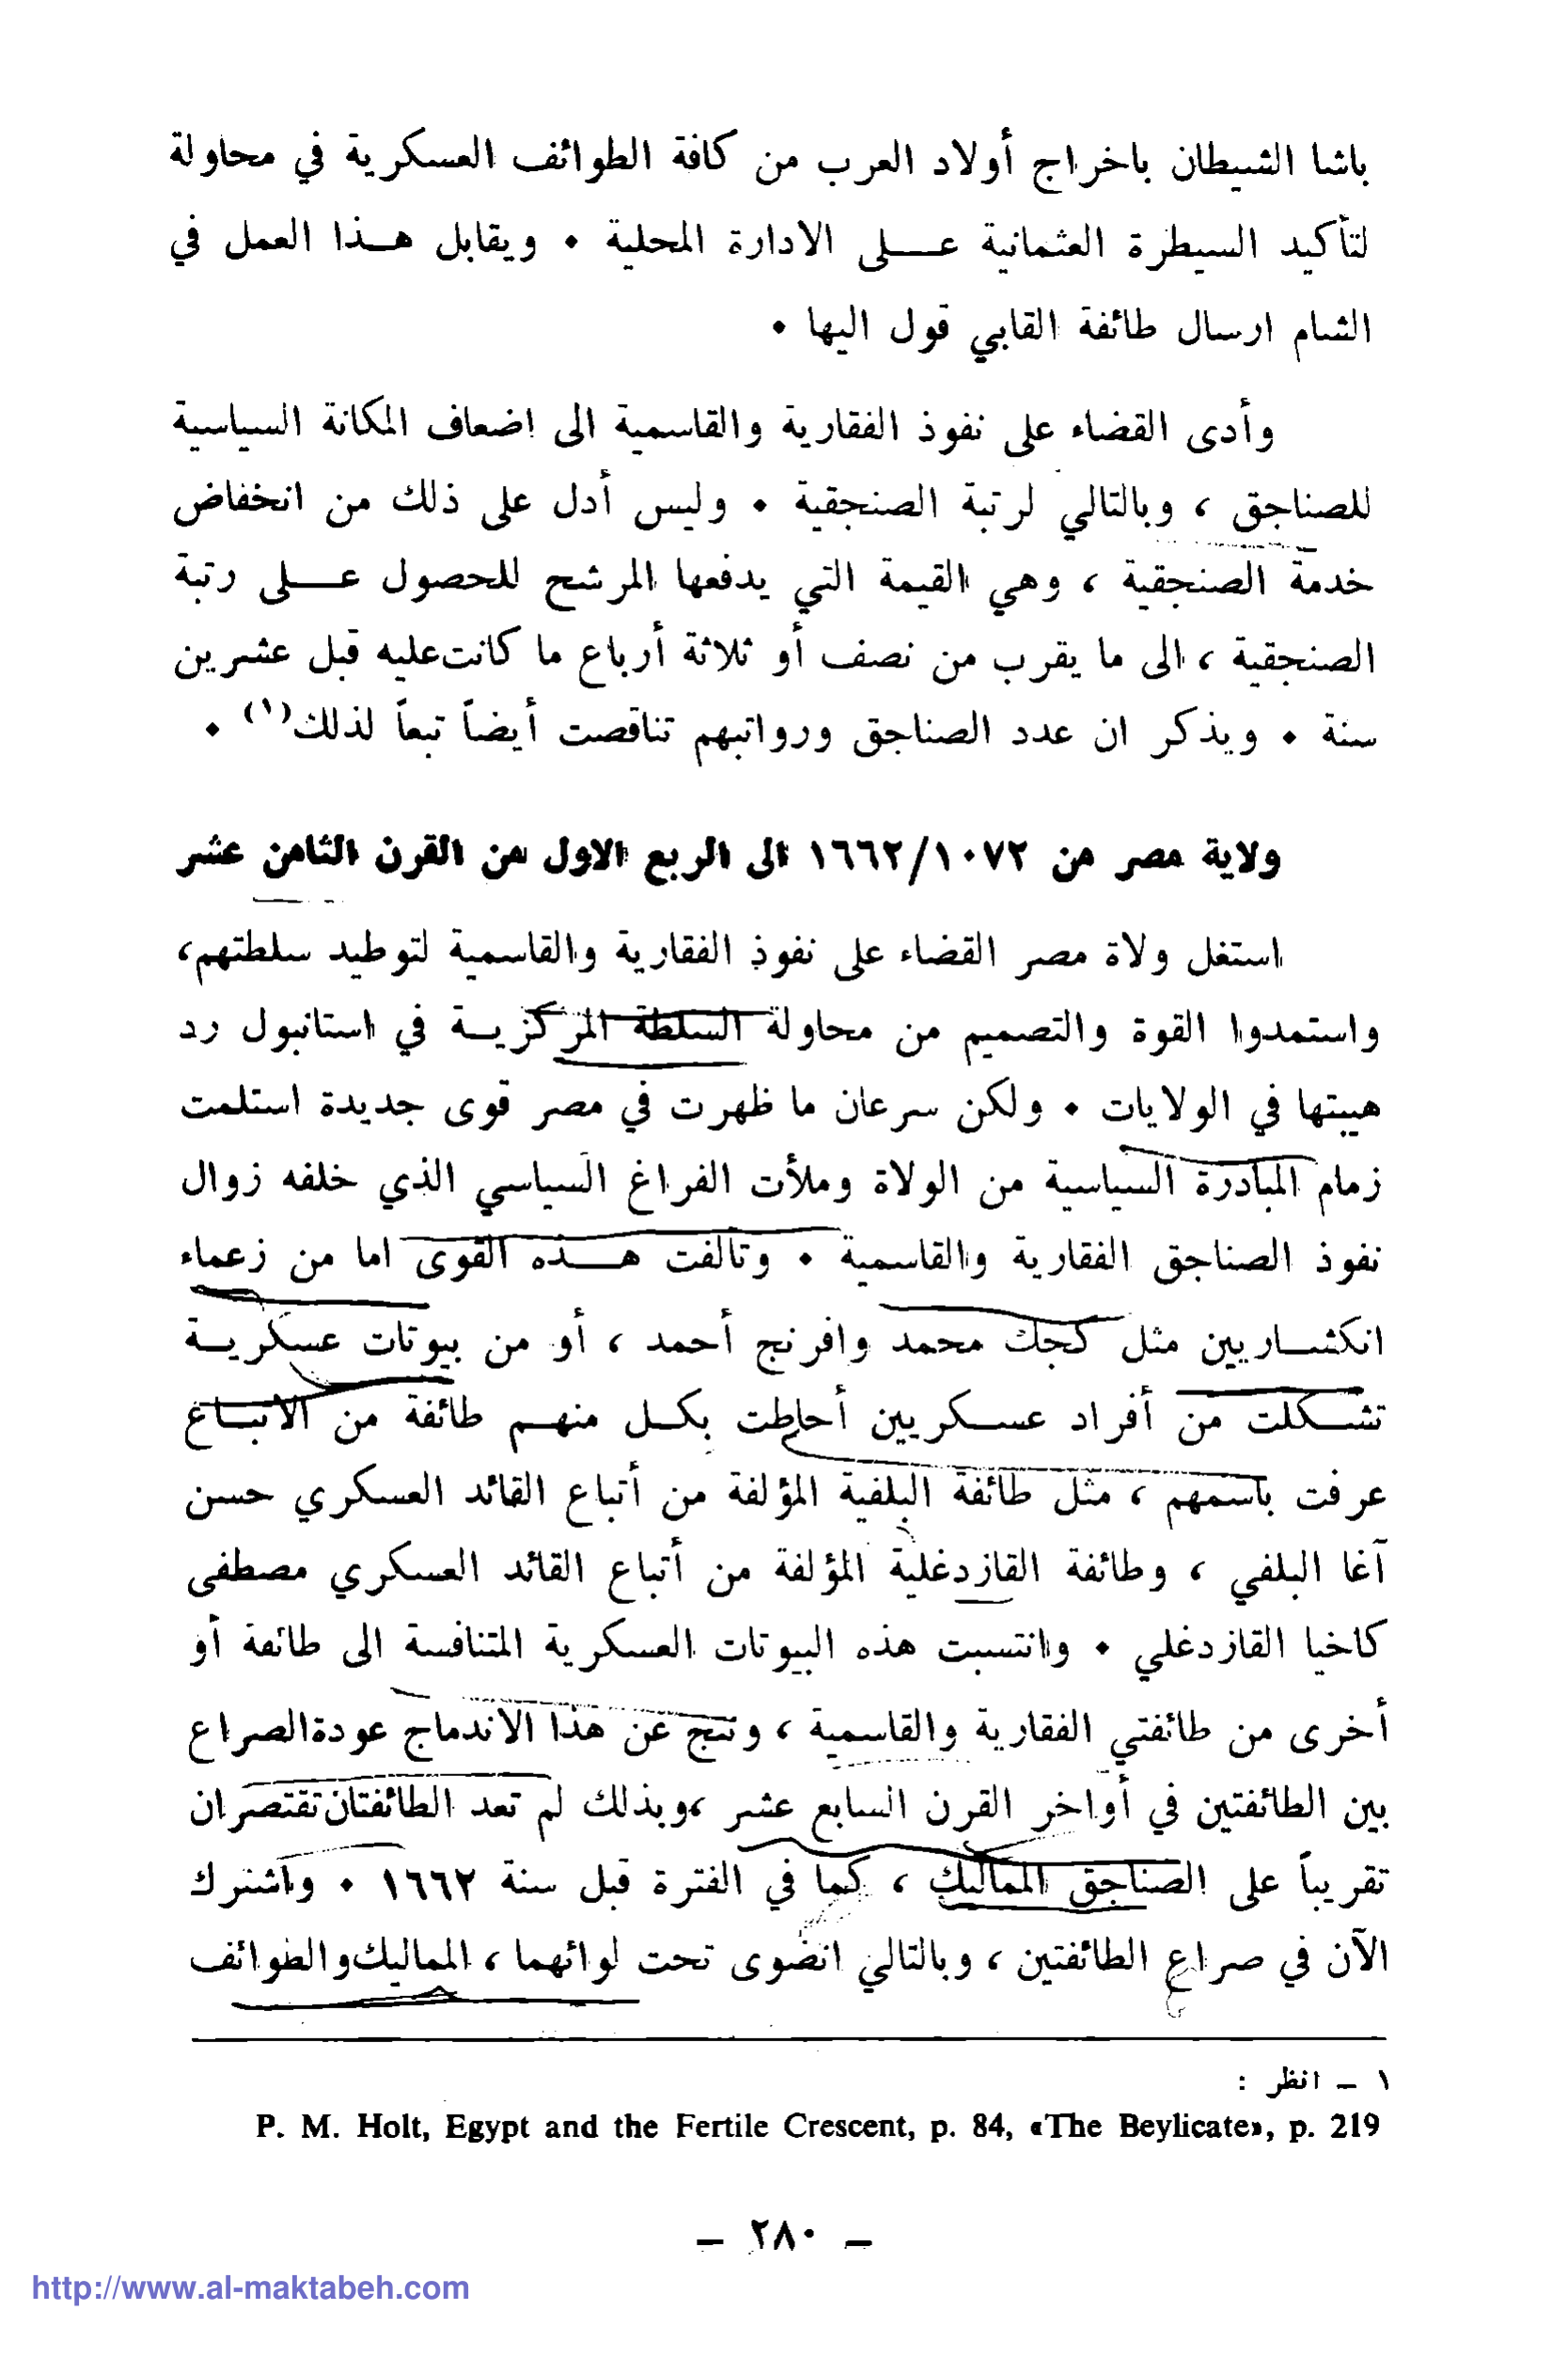 باشا الشيطان باخراج أولاد العرب من كافة الطوائف العسكرية في محاولة
لتأكيد السيطرة العثمانية عـــلى الادارة المحلية ٠ ويقابل هـــذا العمل في
الشام ارسال طائفة القابي قول اليها ٠
وأدى القضاء على نفوذ الفقارية والقاسمية الى اضعاف المكانة السياسية
للصناجق ، وبالتالي لرتبة الصنجقية ٠ وليس أدل على ذلك من انخفاض
خدمة الصنجقية ، وهي القيمة التي يدفعها المرشح للحصول عـــلى رتبة
الصنجقية ، الى ما يقرب من نصف أو ثلاثة أرباع ما كانت عليه قبل عشرين
سنة ٠ ويذكر ان عدد الصناجق ورواتبهم تناقصت أيضاً تبعاً لذلك(١) ٠
ولاية مصر من ١٦٦٢/١٠٧٢ الى الربع الاول من القرن الثامن عشر
استغل ولاة مصر القضاء على نفوذ الفقارية والقاسمية لتوطيد سلطتهم،
واستمدوا القوة والتصميم من محاولة السلطة المركزيـــة في استانبول رد
هيبتها في الولايات ٠ ولكن سرعان ما ظهرت في مصر قوى جديدة استلمت
زمام المبادرة السياسية من الولاة وملأت الفراغ السياسي الذي خلفه زوال
نفوذ الصناجق الفقارية والقاسمية ٠ وتألفت هـــذه القوى اما من زعماء
انكشـــاريين مثل كجك محمد وافرنج أحمد ، أو من بيوتات عسكريـــة
تشـــكلت من أفراد عســـكريين أحاطت بكـــل منهـــم طائفة من الاتبـــاع
عرفت باسمهم ، مثل طائفة البلفية المؤلفة من أتباع القائد العسكري حسن
آغا البلفي ، وطائفة القازدغلية المؤلفة من أتباع القائد العسكري مصطفى
كاخيا القازدغلي ٠ وانتسبت هذه البيوتات العسكرية المتنافسة الى طائفة أو
أخرى من طائفتي الفقارية والقاسمية ، ونتج عن هذا الاندماج عودة الصراع
بين الطائفتين في أواخر القرن السابع عشر ،وبذلك لم تعد الطائفتان تقتصران
تقريباً على الصناجق المماليك ، كما في الفترة قبل سنة ١٦٦٢ ٠ واشترك
الآن في صراع الطائفتين ، وبالتالي انضوى تحت لوائهما ، المماليك والطوائف
١ ــ انظر :
P. M. Holt, Egypt and the Fertile Crescent, p. 84, «The Beylicate», p. 219
ــ ٢٨٠ ــ
http://www.al-maktabeh.com